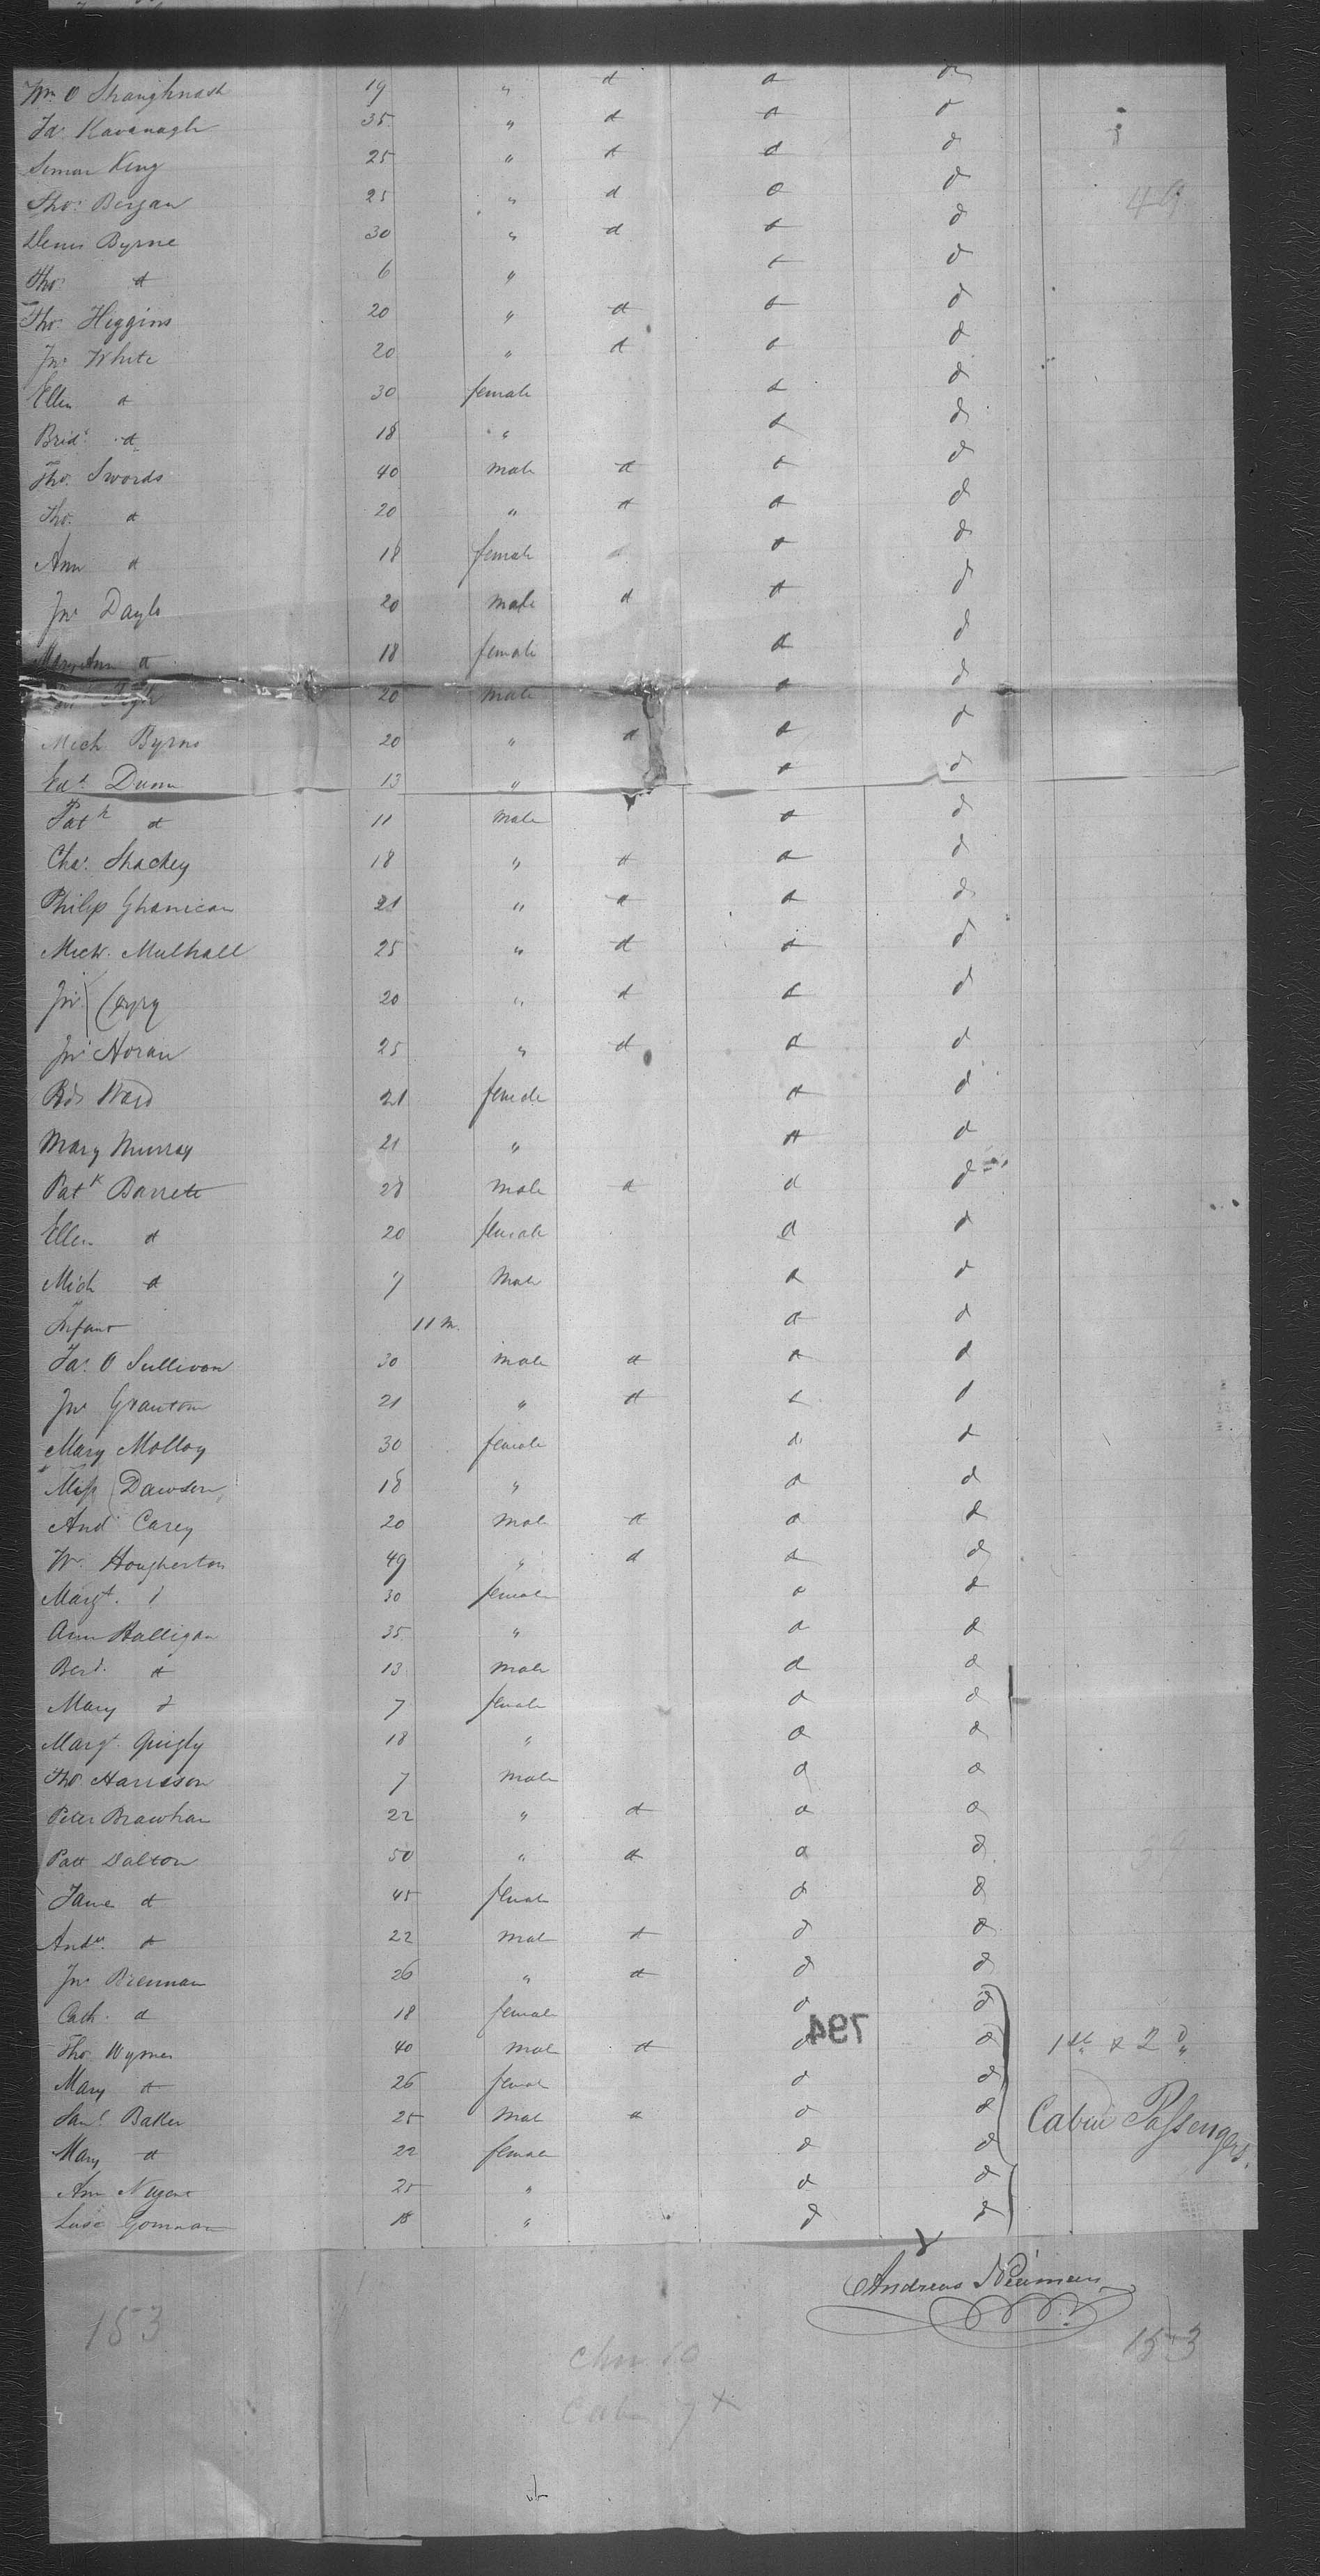 Wm O Shaughnash 19 " d d d
Ja. Kavanagh 35 " d d d
Simon King 25 " d d d
Tho. Bergan 25 " d d d
Denis Byrne 30 " d d d
Tho. d 6 " d d
Tho. Higgins 20 " d d d
Jno White 20 " d d d
Ellen d 30 female d d
Bridt d 18 " d d
Tho. Swords 40 male d d d
Tho. d 20 " d d d
Ann d 18 female d d
Jno Dayls 20 male d d d
Mary Ann d 18 female d d
20 male d d
Mich Byrne 20 " d d d
Edd Dunn 13 " d d
Patk d 11 male d d
Chas. Shackey 18 " d d d
Philip Ghanican 21 " d d d
Mich. Mulhall 25 " d d d
Jno 20 " d d d
Jno Horan 25 " d d d
Ward 21 female d d
Mary Murray 21 " d d
Patk Barrett 28 male d d d
Ellen d 20 female d d
Mich d 7 Male d d
Infant 11 m. d d
Ja. O Sullivan 30 male d d d
Jno Grautom 21 " d d d
Mary Molloy 30 female d d
Miss Dawson 18 " d d
And Carey 20 male d d d
W. Hougherton 49 " d d d
Margt. d 30 female d d
Ann Halligan 35 " d d
Berd. d 13 male d d
Mary d 7 female d d
Margt. Quigly 18 " d d
Tho Harrison 7 male d d
Peter Brawhan 22 " d d d
Patt Dalton 50 " d d d
Jane d 45 female d d
Andw. d 22 male d d d
Jno Brennan 26 " d d d
Cath. d 18 female d d
Tho Wymes 40 male d d d
Mary d 26 female d d
Saml Baker 25 male d d d
Mary d 22 female d d
Ann Nugent 25 " d d
Luse Gomnan 18 " d d
49
39
794
1st & 2d
Cabin Passengers.
Andreas Neuman
153
153